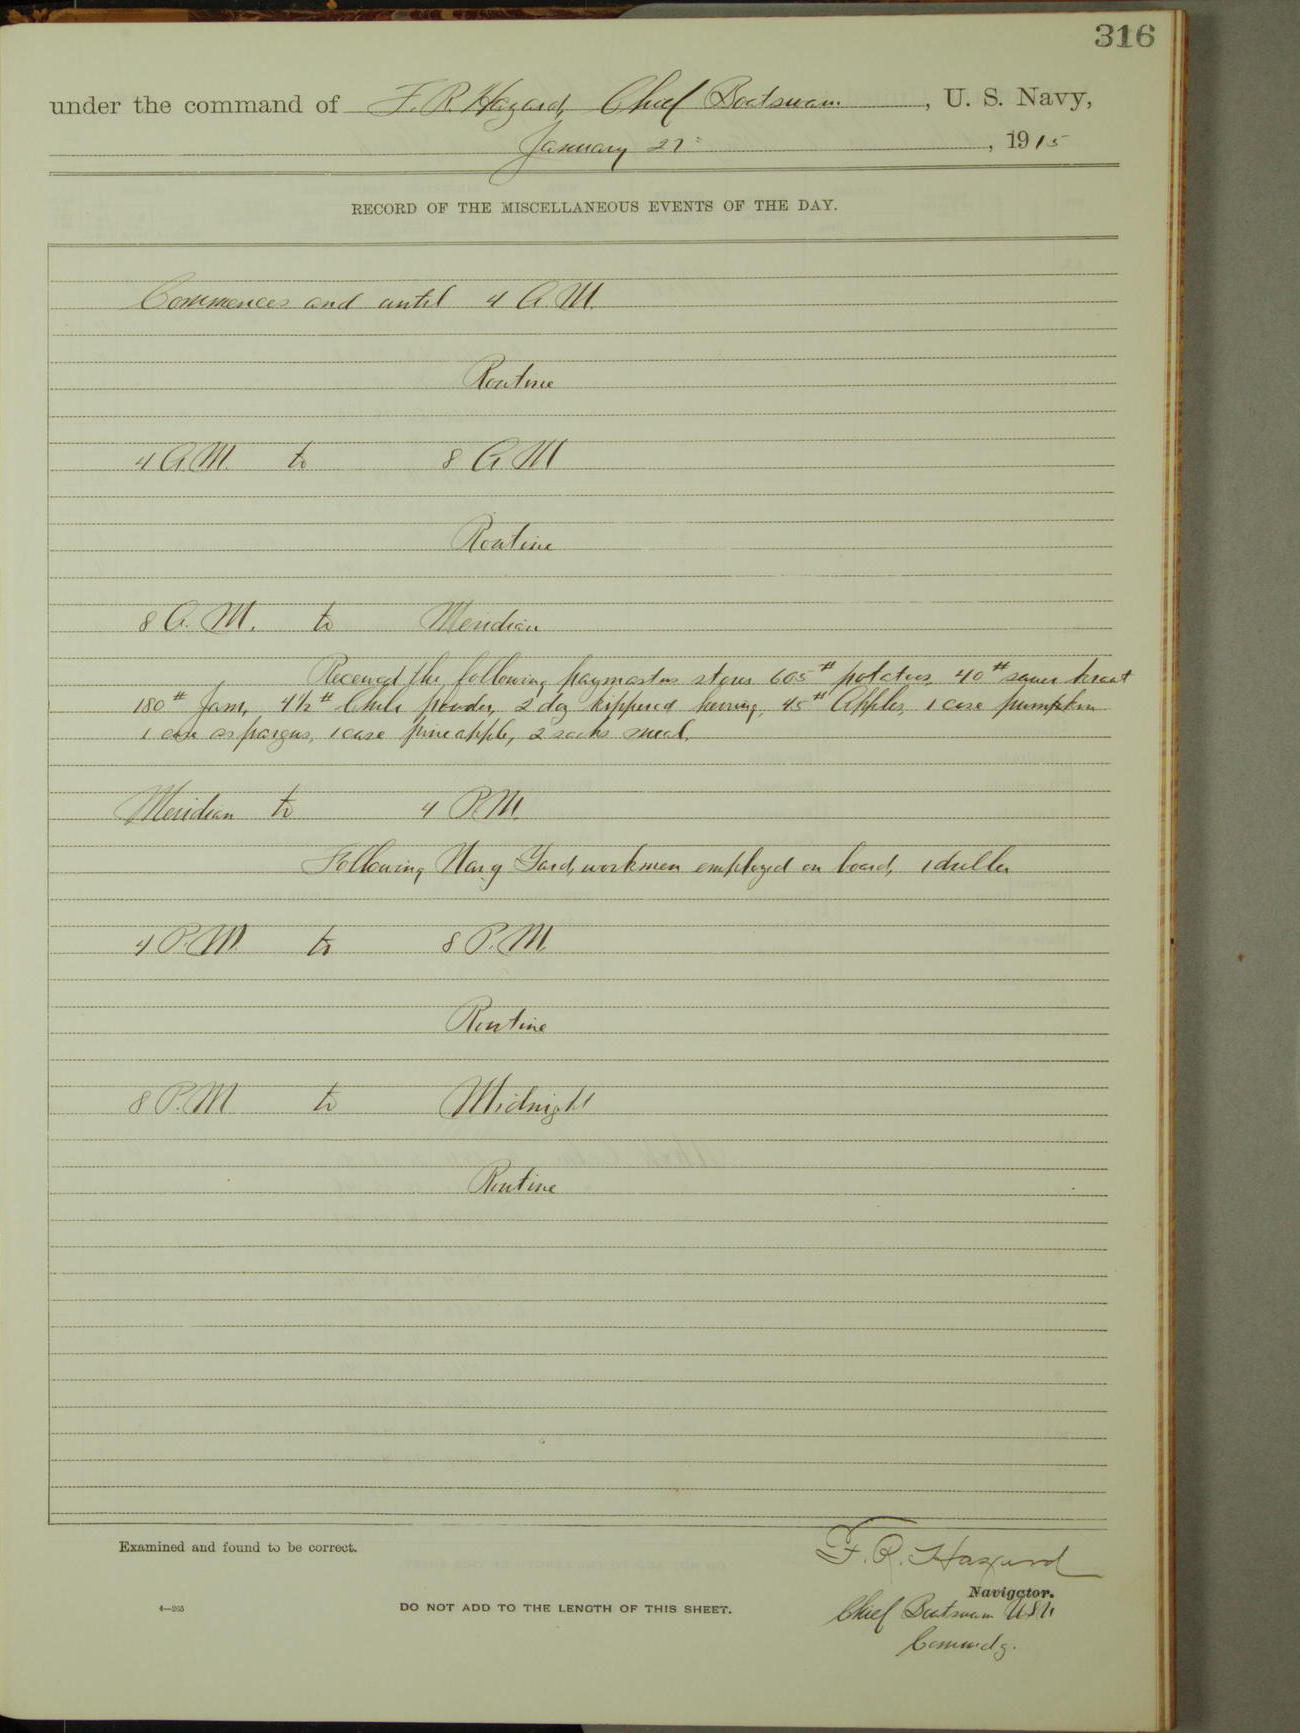 316
under the command of F. R. Hazard, Chief Boatswain, U. S. Navy,
January 27, 1915
RECORD OF THE MISCELLANEOUS EVENTS OF THE DAY.
Commences and until 4 A.M.
Routine
4 A.M. to 8 A.M
Routine
8 A.M. to Meridian
Received the following paymasters stores 605# potatoes, 40# sauer kraut
180# Jam, 4 1/2# Chili powder, 2 doz kippered herring, 45# Apples, 1 case pumpkin
1 case aspargus, 1 case pineapple, 2 sacks meal.
Meridian to 4 P.M.
Following Navy Yard, workmen employed on board, 1 driller
4 P.M. to 8 P.M.
Routine
8 P.M to Midnight
Routine
Examined and found to be correct.
F. R. Hazard
Navigator.
4—265 DO NOT ADD TO THE LENGTH OF THIS SHEET. Chief Boatswain USN
Commdg.